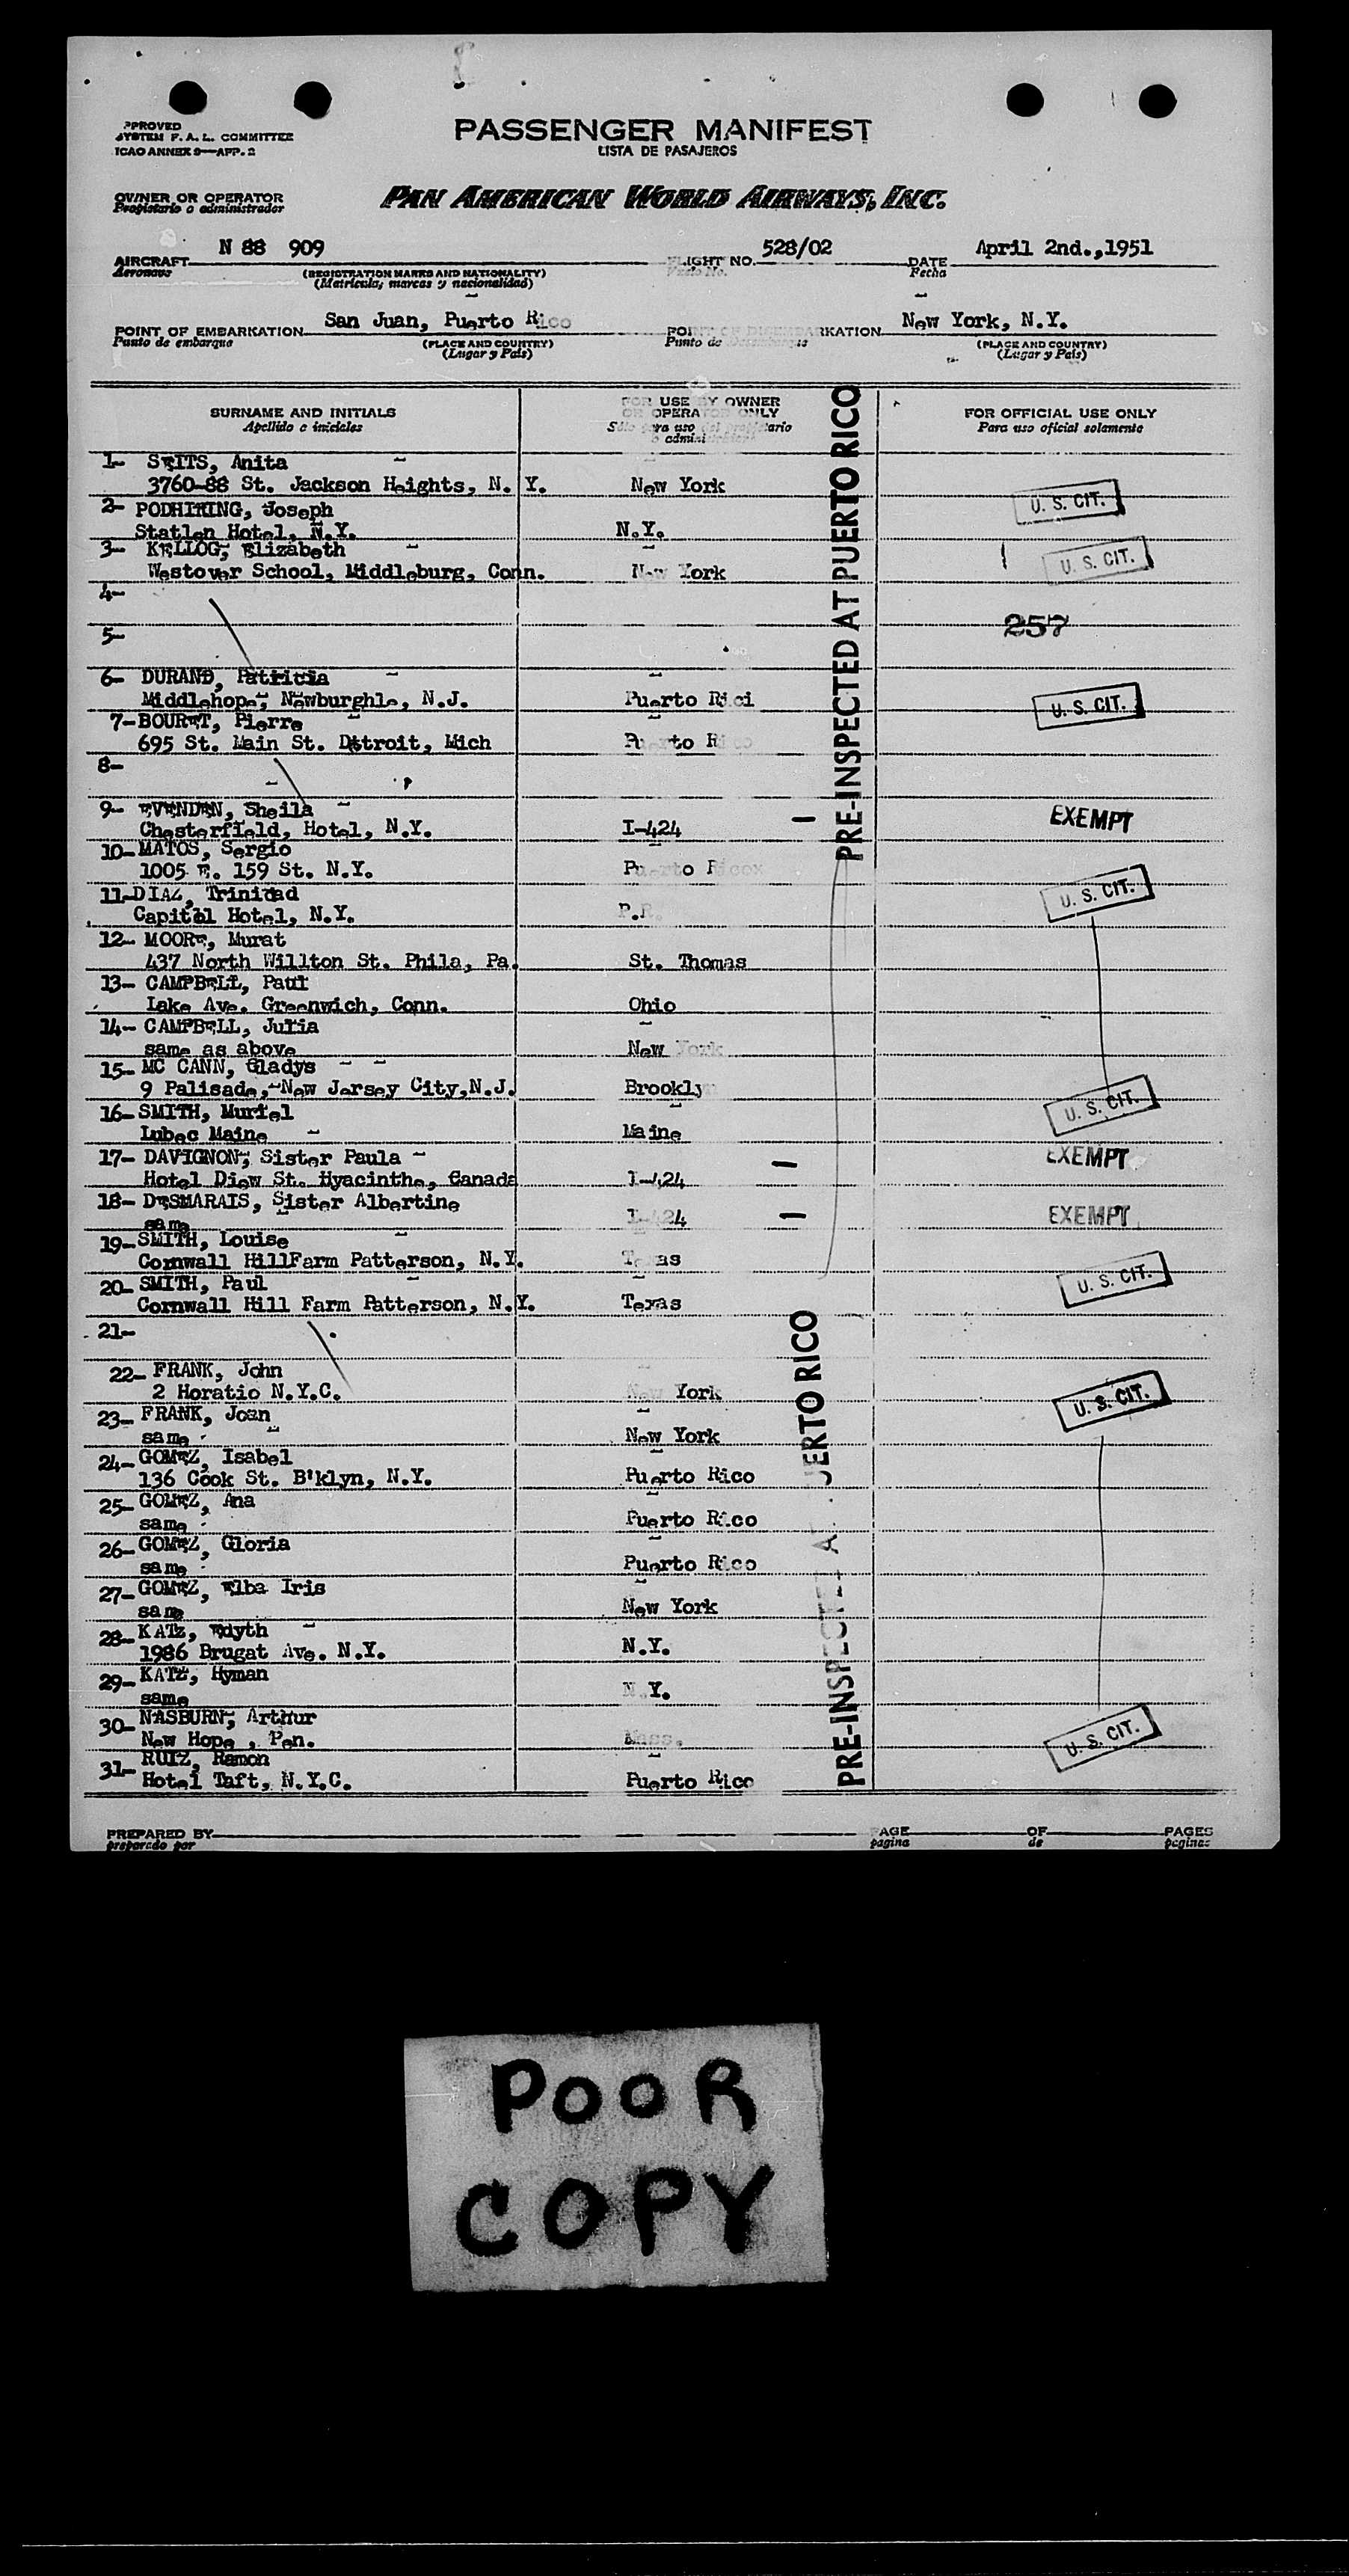 PPROVED
SYSTEM F. A. L. COMMITTEE
ICAO ANNEX 9—APP. 2
PASSENGER MANIFEST
LISTA DE PASAJEROS
OWNER OR OPERATOR
Propietario o administrador
PAN AMERICAN WORLD AIRWAYS, INC.
AIRCRAFT N 88 909 FLIGHT NO. 528/02 DATE April 2nd.,1951
Aeronave (REGISTRATION MARKS AND NATIONALITY) Vuelo No. Fecha
(Matricula, marcas y nacionalidad)
POINT OF EMBARKATION San Juan, Puerto Rico POINT OF DISEMBARKATION New York, N.Y.
Punto de embarque (PLACE AND COUNTRY) Punto de (PLACE AND COUNTRY)
(Lugar y País) (Lugar y País)
SURNAME AND INITIALS FOR USE BY OWNER OR OPERATOR ONLY FOR OFFICIAL USE ONLY
Apellido e iniciales Sólo para uso del propietario o Para uso oficial solamente
PRE-INSPECTED AT PUERTO RICO
1- SEITS, Anita
3760-88 St. Jackson Heights, N. Y. New York U. S. CIT.
2- PODHIKING, Joseph
Statlen Hotel, N.Y. N.Y.
3- KELLOG, Elizabeth
Westover School, Middleburg, Conn. New York U. S. CIT.
4-
5- 257
6- DURAND, Patricia
Middlehope, Newburghle, N.J. Puerto Rici U. S. CIT.
7- BOURET, Pierre
695 St. Main St. Detroit, Mich Puerto Rico
8-
9- EVENDEN, Sheila
Chesterfield, Hotel, N.Y. I-424 EXEMPT
10- MATOS, Sergio
1005 E. 159 St. N.Y. Puerto Ricox
11- DIAZ, Trinidad U. S. CIT.
Capitol Hotel, N.Y. P.R.
12- MOORE, Murat
437 North Willton St. Phila, Pa. St. Thomas
13- CAMPBELL, Paul
Lake Ave. Greenwich, Conn. Ohio
14- CAMPBELL, Julia
same as above New York
15- MC CANN, Gladys
9 Palisade, New Jersey City,N.J. Brooklyn
16- SMITH, Muriel U. S. CIT.
Lubec Maine Maine
17- DAVIGNON, Sister Paula EXEMPT
Hotel Diew St. Hyacinthe, Canada I-424
18- DESMARAIS, Sister Albertine
same I-424 EXEMPT
19- SMITH, Louise
Cornwall HillFarm Patterson, N.Y. Texas
20- SMITH, Paul U. S. CIT.
Cornwall Hill Farm Patterson, N.Y. Texas
21-
22- FRANK, John
2 Horatio N.Y.C. New York U. S. CIT.
23- FRANK, Joan
same New York
24- GOMEZ, Isabel
136 Cook St. B'klyn, N.Y. Puerto Rico
25- GOMEZ, Ana
same Puerto Rico
26- GOMEZ, Gloria
same Puerto Rico
27- GOMEZ, Elba Iris
same New York
28- KATz, Edyth
1986 Brugat Ave. N.Y. N.Y.
29- KATZ, Hyman
same N.Y.
30- NASBURN, Arthur
New Hope , Pen. Mass. U. S. CIT.
31- RUIZ, Ramon
Hotel Taft, N.Y.C. Puerto Rico
PRE-INSPECTED AT PUERTO RICO
PREPARED BY PAGE OF PAGES
preparado por pagina de paginas
POOR
COPY